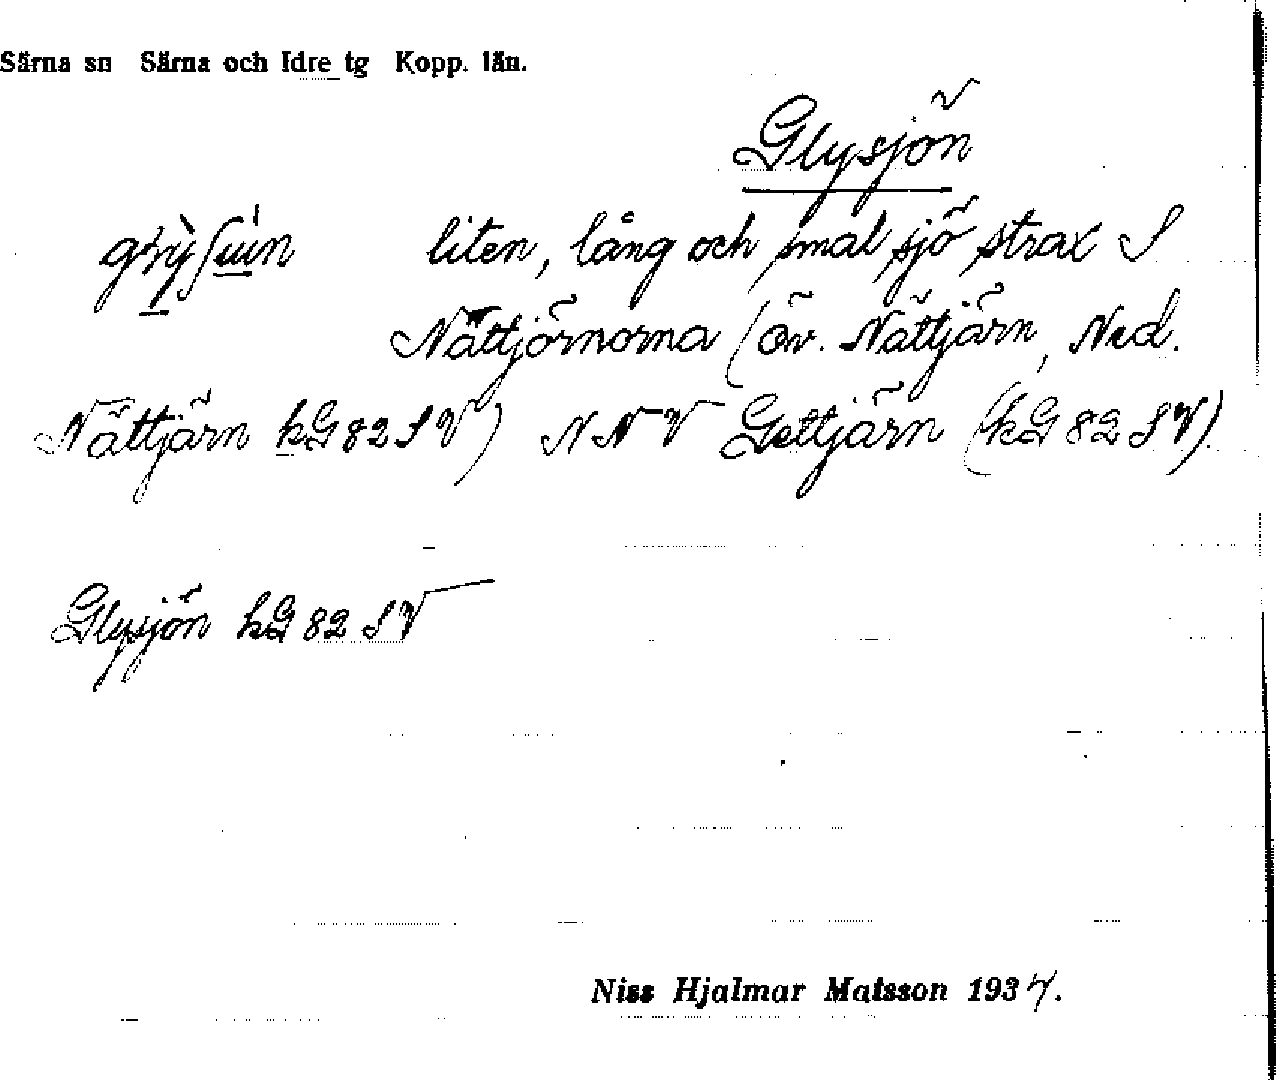 Särna sn Särna och Idre tg Kopp. län.
Glysjön
liten, lång och smal sjö strax S
Nättjörnorna (Öv. Nättjärn, Ned.
Nättjärn kG 82 SV) NNV Gettjärn (kG 82 SV).
Glysjön kG 82 SV
Niss Hjalmar Matsson 1937.